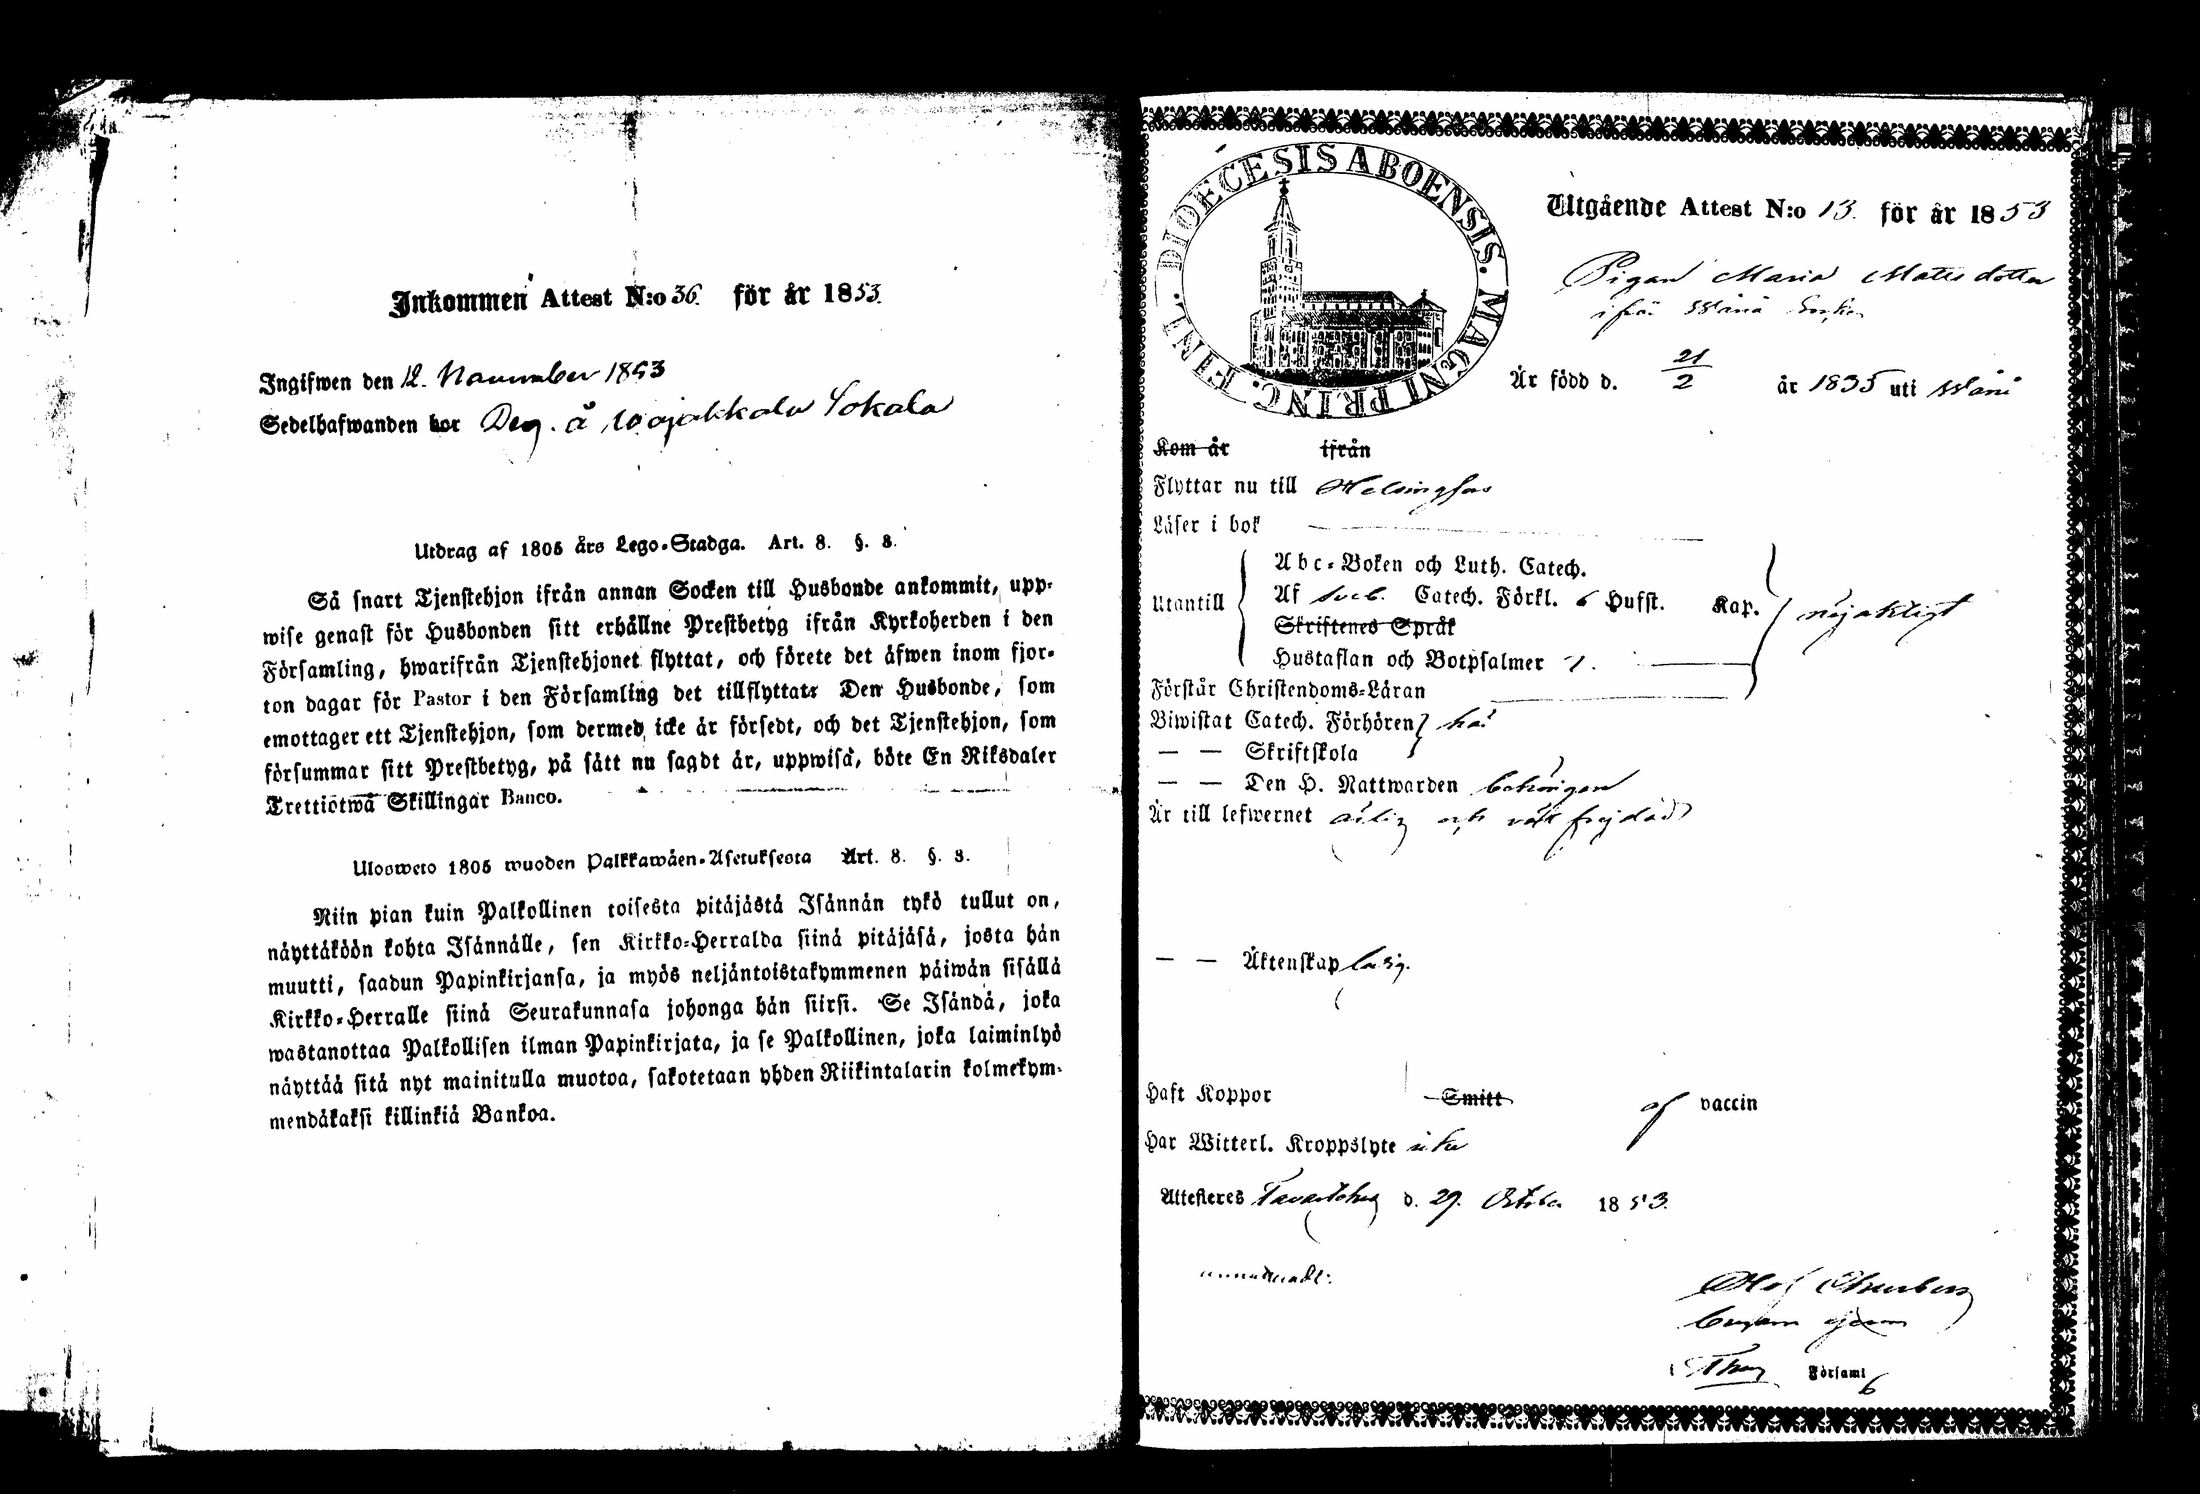 Inkommen Attest N:o 36. för år 1853.
Ingifwen den 12. November 1853
Sedelhafwanden bor Deg. å Wojakkala Sokala
Utdrag af 1805 års Lego-Stadga. Art. 8. §. 3.
Så snart Tjenstehjon ifrån annan Socken till Husbonde ankommit, upp-
wise genast för Husbonden sitt erhållne Prestbetyg ifrån Kyrkoherden i den
Församling, hwarifrån Tjenstehjonet flyttat, och förete det äfwen inom fjor-
ton dagar för Pastor i den Församling det tillflyttat. Den Husbonde, som
emottager ett Tjenstehjon, som dermed icke är försedt, och det Tjenstehjon, som
försummar sitt Prestbetyg, på sätt nu sagdt är, uppwisa, böte En Riksdaler
Trettiotwå Skillingar Banco.
Ulosweto 1805 wuoden Palkkawäen-Asetuksesta Art. 8. §. 3.
Niin pian kuin Palkollinen toisesta pitäjästä Isännän tykö tullut on,
näyttäköön kohta Isännälle, sen Kirkko-Herralda siinä pitäjäsä, josta hän
muutti, saadun Papinkirjansa, ja myös neljäntoistakymmenen päiwän sisällä
Kirkko-Herralle siinä Seurakunnasa johonga hän siirsi. Se Isändä, joka
wastanottaa Palkollisen ilman Papinkirjata, ja se Palkollinen, joka laiminlyö
näyttää sitä nyt mainitulla muotoa, sakotetaan yhden Riikintalarin kolmekym-
mendäkaksi killinkiä Bankoa.
DIOECESIS ABOENSIS. MAGNI PRINC. FINL.
Utgående Attest N:o 13. för år 1853
Pigan Maria Matts dotter
ifrå Wånå
Är född d. 21/2 år 1835 uti Wånå
Kom år ifrån
Flyttar nu till Helsingfors
Läser i bok
Abc-Boken och Luth. Catech.
Utantill Af sveb. Catech. Förkl. 6 Husst. Kap. nöjaktigt
Skriftenes Språk
Hustaflan och Botpsalmer 1.
Förstår Christendoms-Läran
Biwistat Catech. Förhören
— — Skriftskola
— — Den H. Nattwarden behörigen
Är till lefwernet ärlig och väl frejdad
— — Äktenskap ledig.
Haft Koppor Smitt af vaccin
Har Witterl. Kroppslyte icke
Attesteres Tavastehus d. 29. October 1853.
Olof
Församl
6